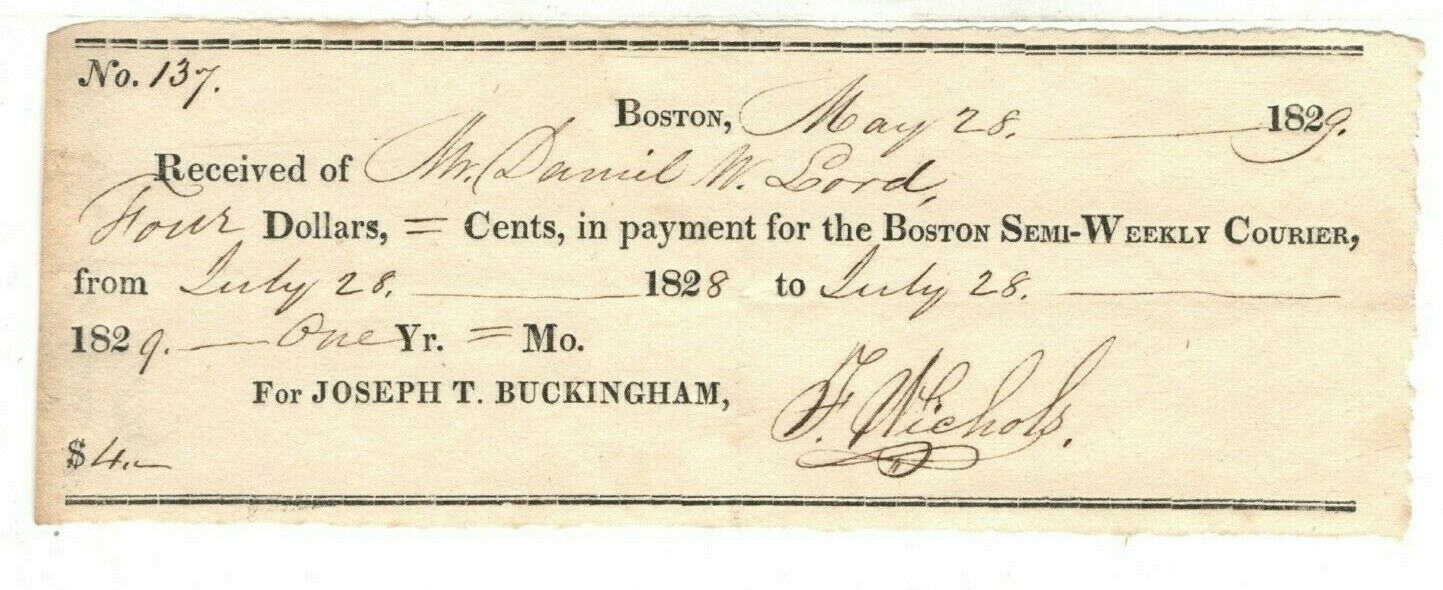 No. 137.
BOSTON, May 28. 1829.
Received of Mr. Daniel W. Lord,
Four Dollars, = Cents, in payment for the BOSTON SEMI-WEEKLY COURIER,
from July 28. 1828 to July 28.
1829. — One Yr. = Mo.
For JOSEPH T. BUCKINGHAM, F. Nichols.
$4.—